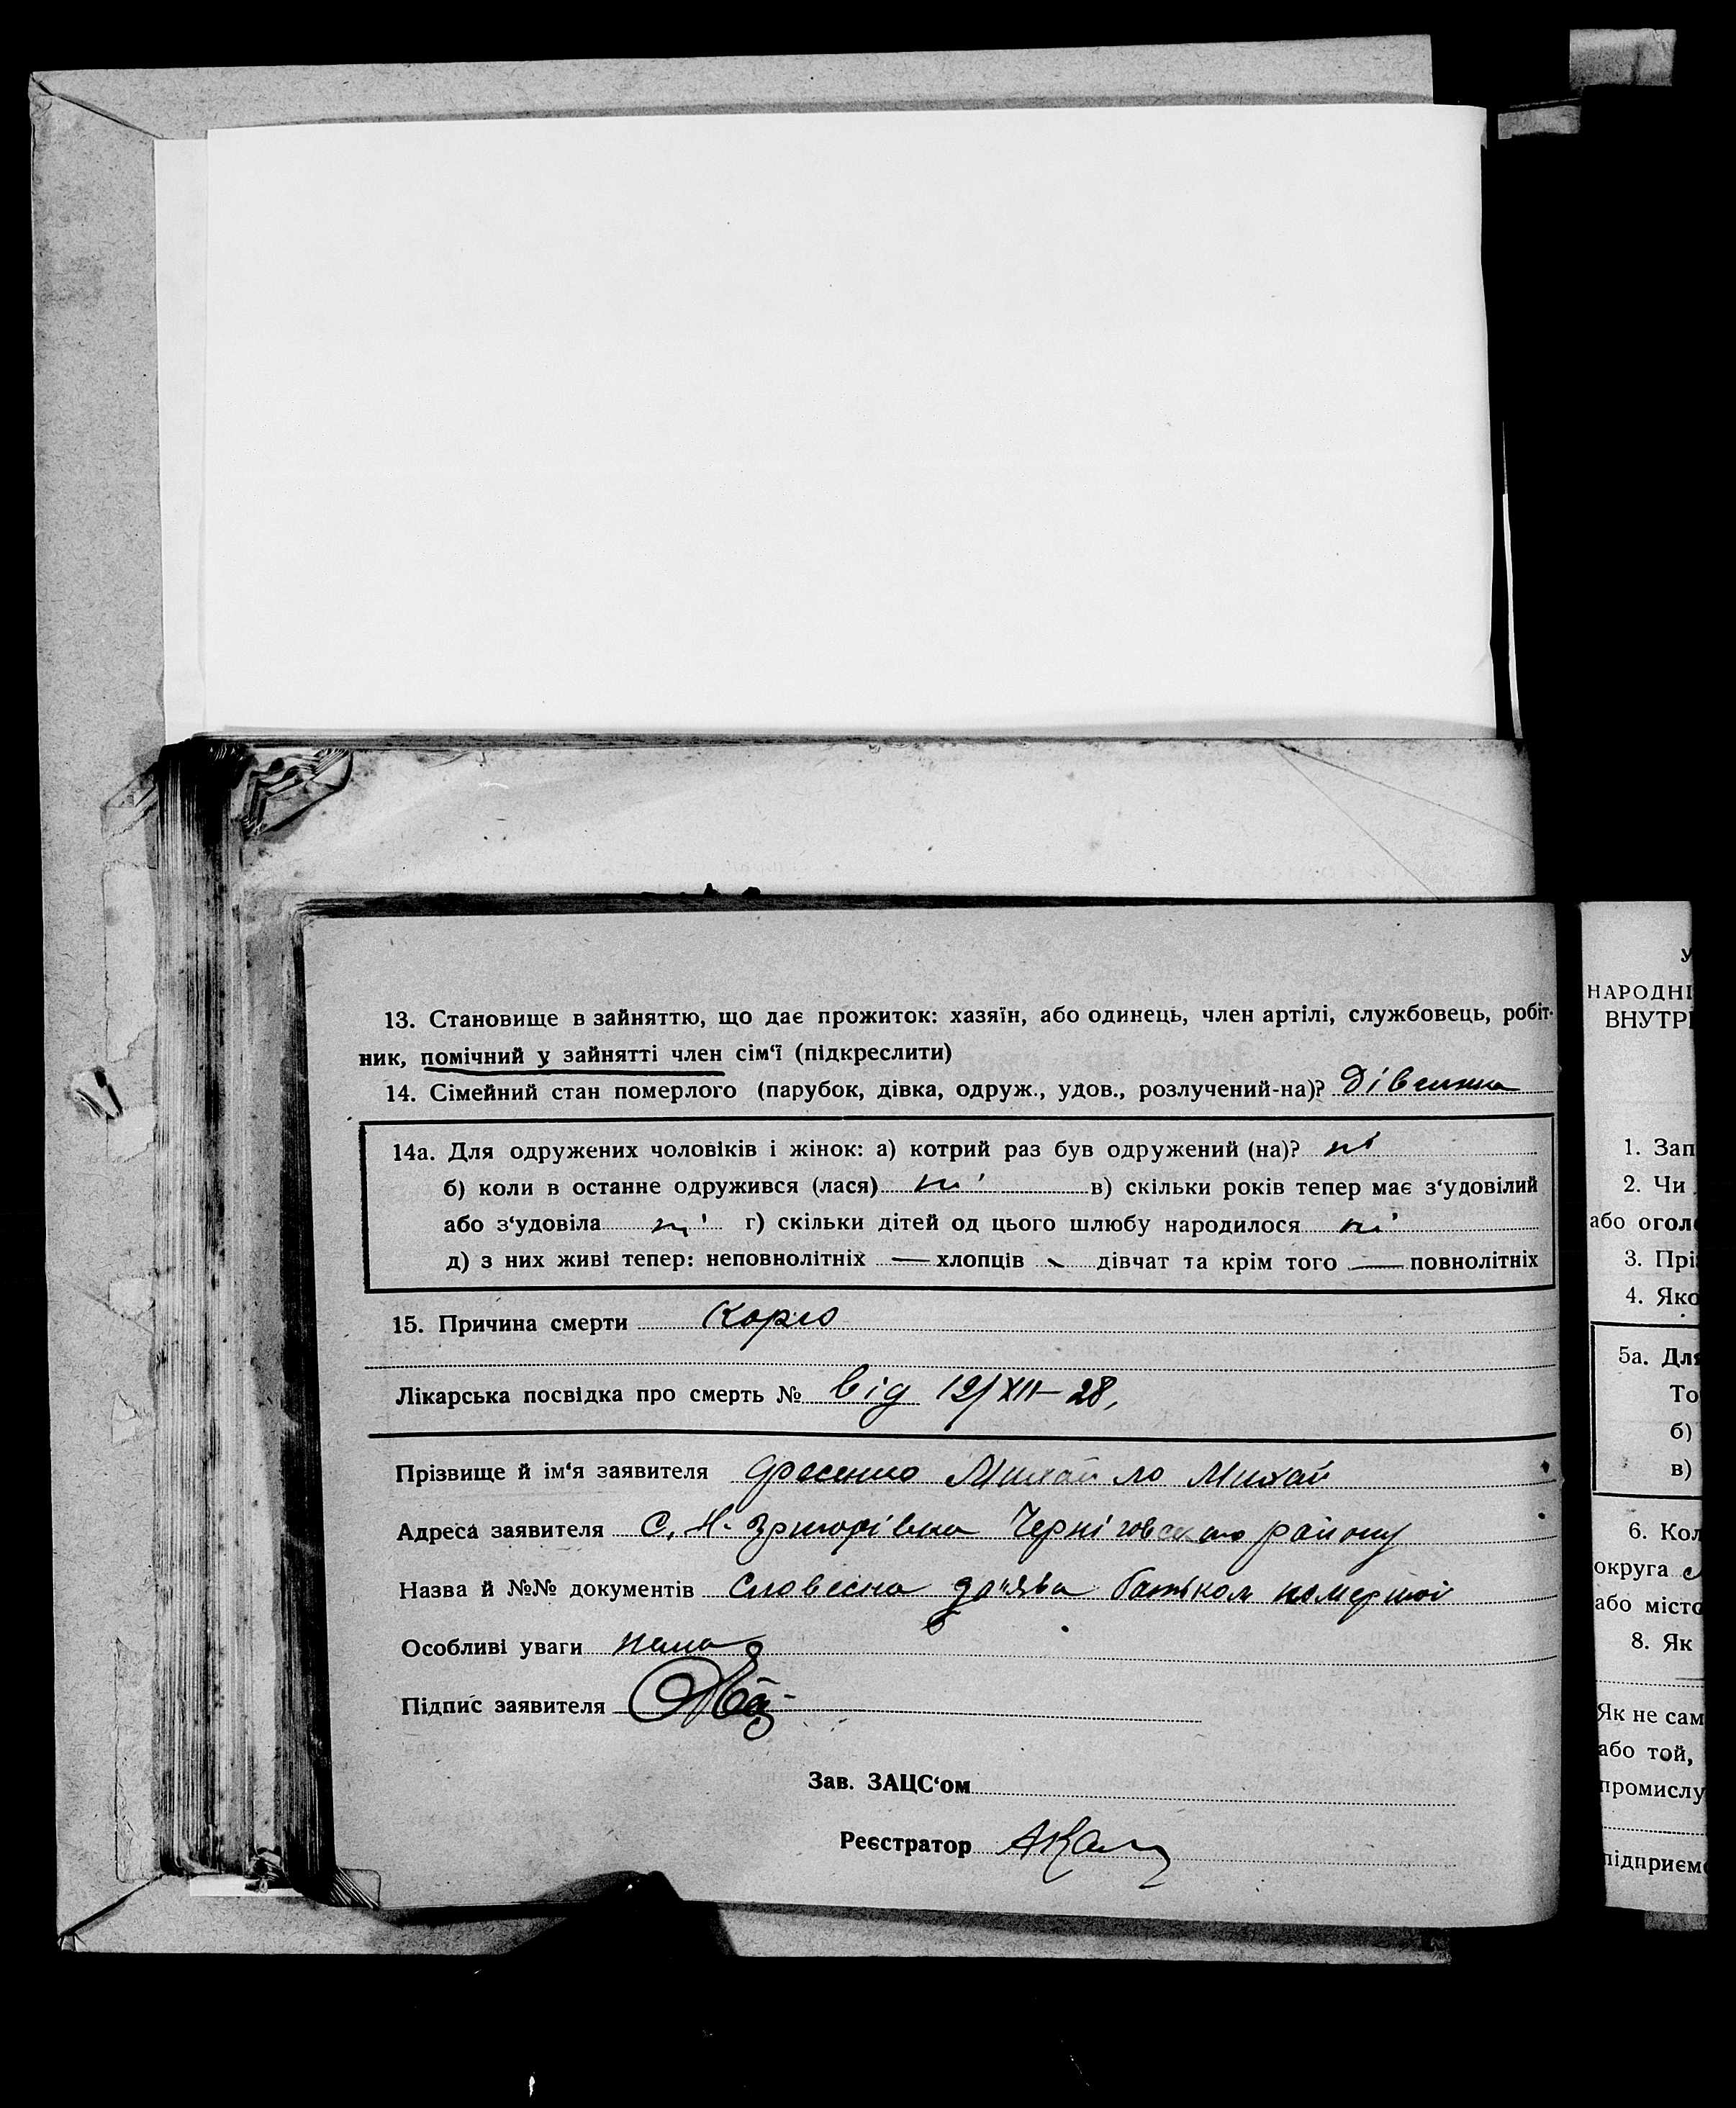 13. Становище в зайняттю, що дає прожиток: хазяїн, або одинець, член артілі, службовець, робіт-
ник, помічний у зайнятті член сім‘ї (підкреслити)
14. Сімейний стан померлого (парубок, дівка, одруж., удов., розлучений-на)? Дівчинка
14а. Для одружених чоловіків і жінок: а) котрий раз був одружений (на)? ні
б) коли в останне одружився (лася) ні в) скільки років тепер має з‘удовілий
або з‘удовіла ні г) скільки дітей од цього шлюбу народилося ні
д) з них живі тепер: неповнолітніх — хлопців - дівчат та крім того — повнолітніх
15. Причина смерти Корю
Лікарська посвідка про смерть № від 12/XII–28,
Прізвище й ім‘я заявителя Михайло Михай
Адреса заявителя С. Н-Григорівка Чернігівського району
Назва й №№ документів Словесна заява батьком помершої
Особливі уваги нема
Підпис заявителя
Зав. ЗАЦС‘ом
Реєстратор
У
НАРОДНІ
ВНУТРІ
1. Зап
2. Чи
або огол
3. Прі
4. Яко
5а. Для
То
б)
в)
6. Кол
округа
або місто
8. Як
Як не сам
або той,
промислу
підприєм